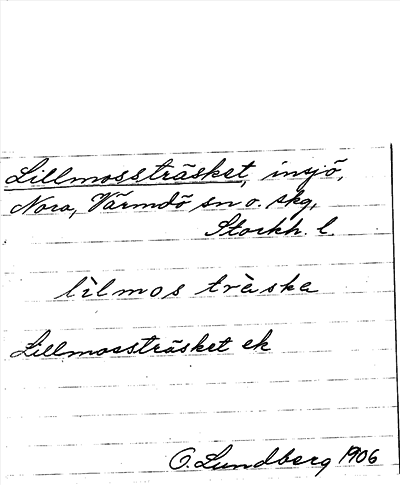 Lillmossträsket, insjö,
Nora, Värmdö sn o. skg,
Stockh. l.
lìlmos træ̀ska
Lillmossträsket ek
O. Lundberg 1906